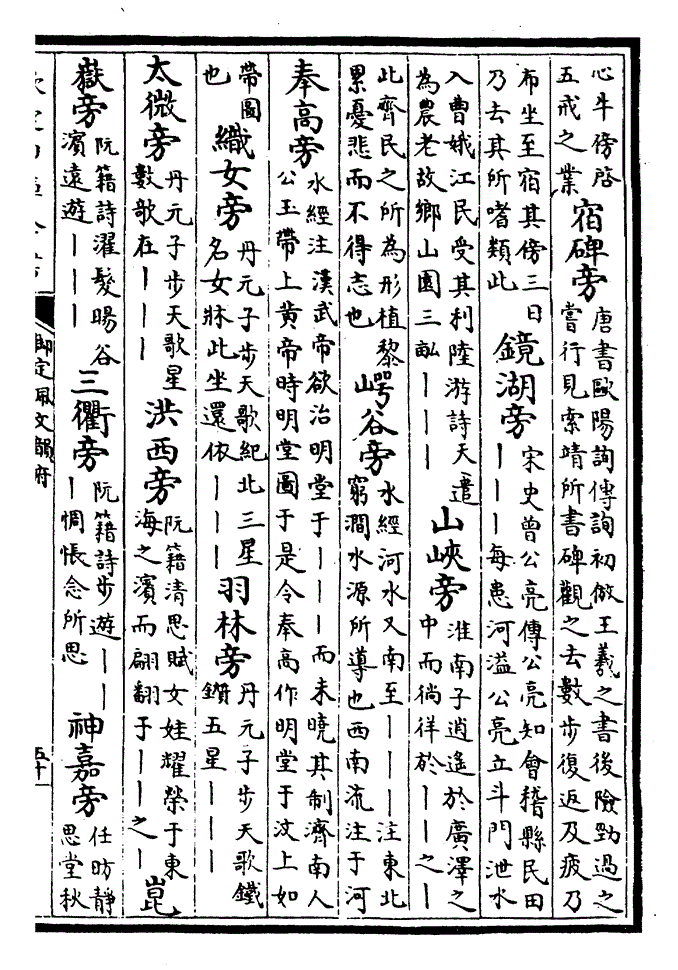 心牛傍啓五戒之業宿碑旁唐書歐陽詢傳詢初倣王羲之書後險勁過之嘗行見索靖所書碑觀之去數步復返及疲乃
布坐至宿其傍三日乃去其所嗜類此鏡湖旁宋史曾公亮傳公亮知會稽縣民田丨丨丨每患河溢公亮立斗門泄水
入曹娥江民受其利陸游詩天遣為農老故鄉山園三畝丨丨丨山峽旁淮南子逍遙於廣澤之中而徜徉於丨丨之丨
此齊民之所為形植黎累憂悲而不得志也崿谷旁水經河水又南至丨丨丨注東北窮澗水源所導也西南流注于河
奉高旁水經注漢武帝欲治明堂于丨丨丨而未曉其制濟南人公玉帶上黄帝時明堂圖于是令奉高作明堂于汶上如
帶圖也織女旁丹元子步天歌紀北三星名女牀此坐還依丨丨丨羽林旁丹元子步天歌鐵鑕五星丨丨丨
太微旁丹元子步天歌星數歌在丨丨丨洪西旁阮籍清思賦女娃耀榮于東海之濱而翩翻于丨丨之丨崑
嶽旁阮籍詩濯髮暘谷濱遠遊丨丨丨三衢旁阮籍詩步遊丨丨丨惆悵念所思神嘉旁任昉靜思堂秋
御定佩文韻府